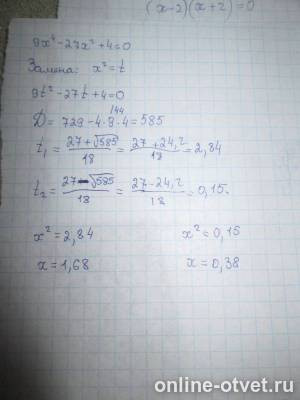 (x-2)(x+2)=0
9x⁴-27x²+4=0
Замена: x²=t
9t²-27t+4=0
144
D=729-4·9·4=585
t₁=(27+√585)/18=(27+24,2)/18=2,84
t₂=(27-√585)/18=(27-24,2)/18=0,15
x²=2,84 x²=0,15
x=1,68 x=0,38
online-otvet.ru